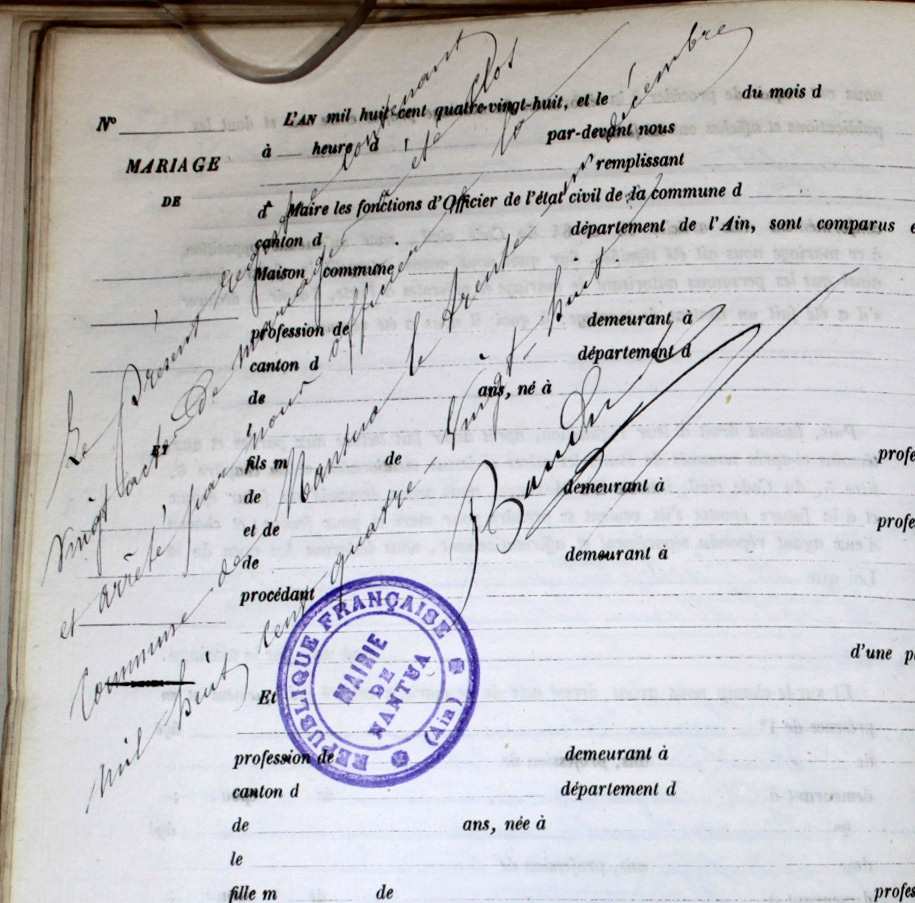 N° L'AN mil huit cent quatre-vingt-huit, et le du mois d
à heure d par-devant nous
MARIAGE remplissant
DE
d Maire les fonctions d'Officier de l'état civil de la commune d
canton d département de l'Ain, sont comparus e
Maison commune
profession de demeurant à
canton d département d
de ans, né à
le
ET
fils m de profe
de demeurant à
et de profe
de demeurant à
procédant
d'une pa
Et
profession de demeurant à
canton d département d
de ans, née à
le
fille m de profes
Le présent registre contenant
vingt actes de mariage a été clos
et arrêté par nous officier
Commune de Nantua le trente un décembre
mil huit cent quatre-vingt-huit
RÉPUBLIQUE FRANÇAISE
(Ain)
MAIRIE
DE
NANTUA